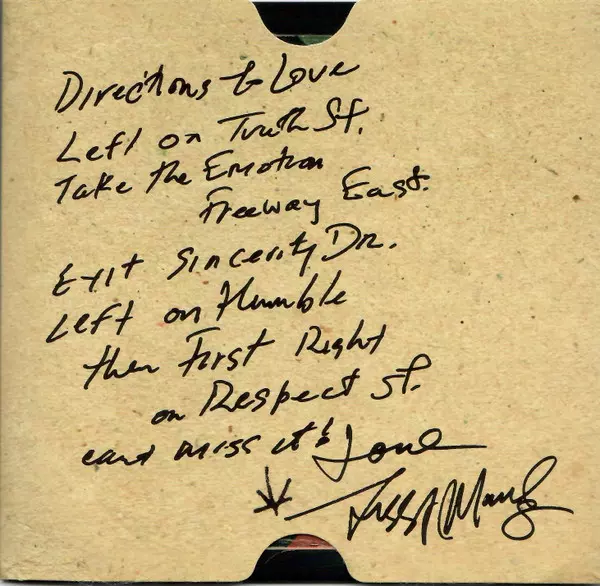 Directions to Love
Left on Truth St.
Take the Emotion
Freeway East.
Exit Sincerity Dr.
Left on Humble
then First Right
on Respect St.
cant miss it!
Love